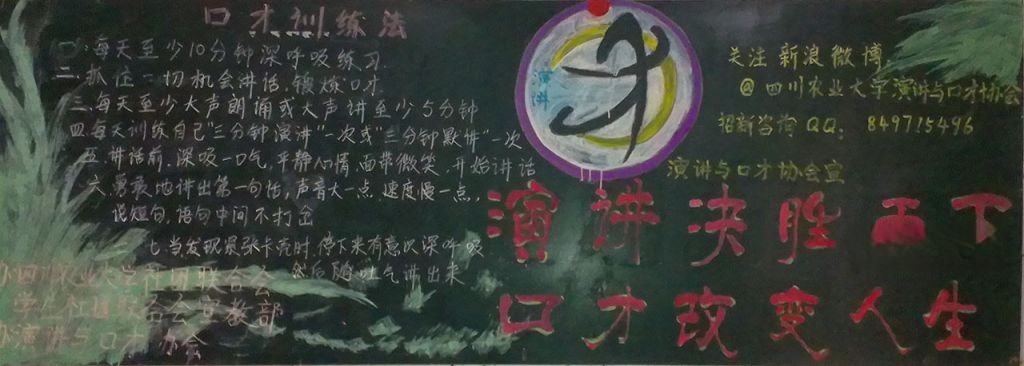 口才训练法
一.每天至少10分钟深呼吸练习
二.抓住一切机会讲话,锻炼口才
三.每天至少大声朗诵或大声讲至少5分钟
四.每天训练自己"三分钟演讲"一次或"三分钟默讲"一次
五.讲话前,深吸一口气,平静心情,面带微笑,开始讲话
六.勇敢地讲出第一句话,声音大一点,速度慢一点,
说短句,语句中间不打岔
七.当发现紧张卡壳时,停下来有意识深呼吸
然后随吐气讲出来
四川农业大学社团联合会
学生社团联合会宣教部
演讲与口才协会
演讲
关注新浪微博
@四川农业大学演讲与口才协会
招新咨询QQ: 849715496
演讲与口才协会宣
演讲决胜天下
口才改变人生